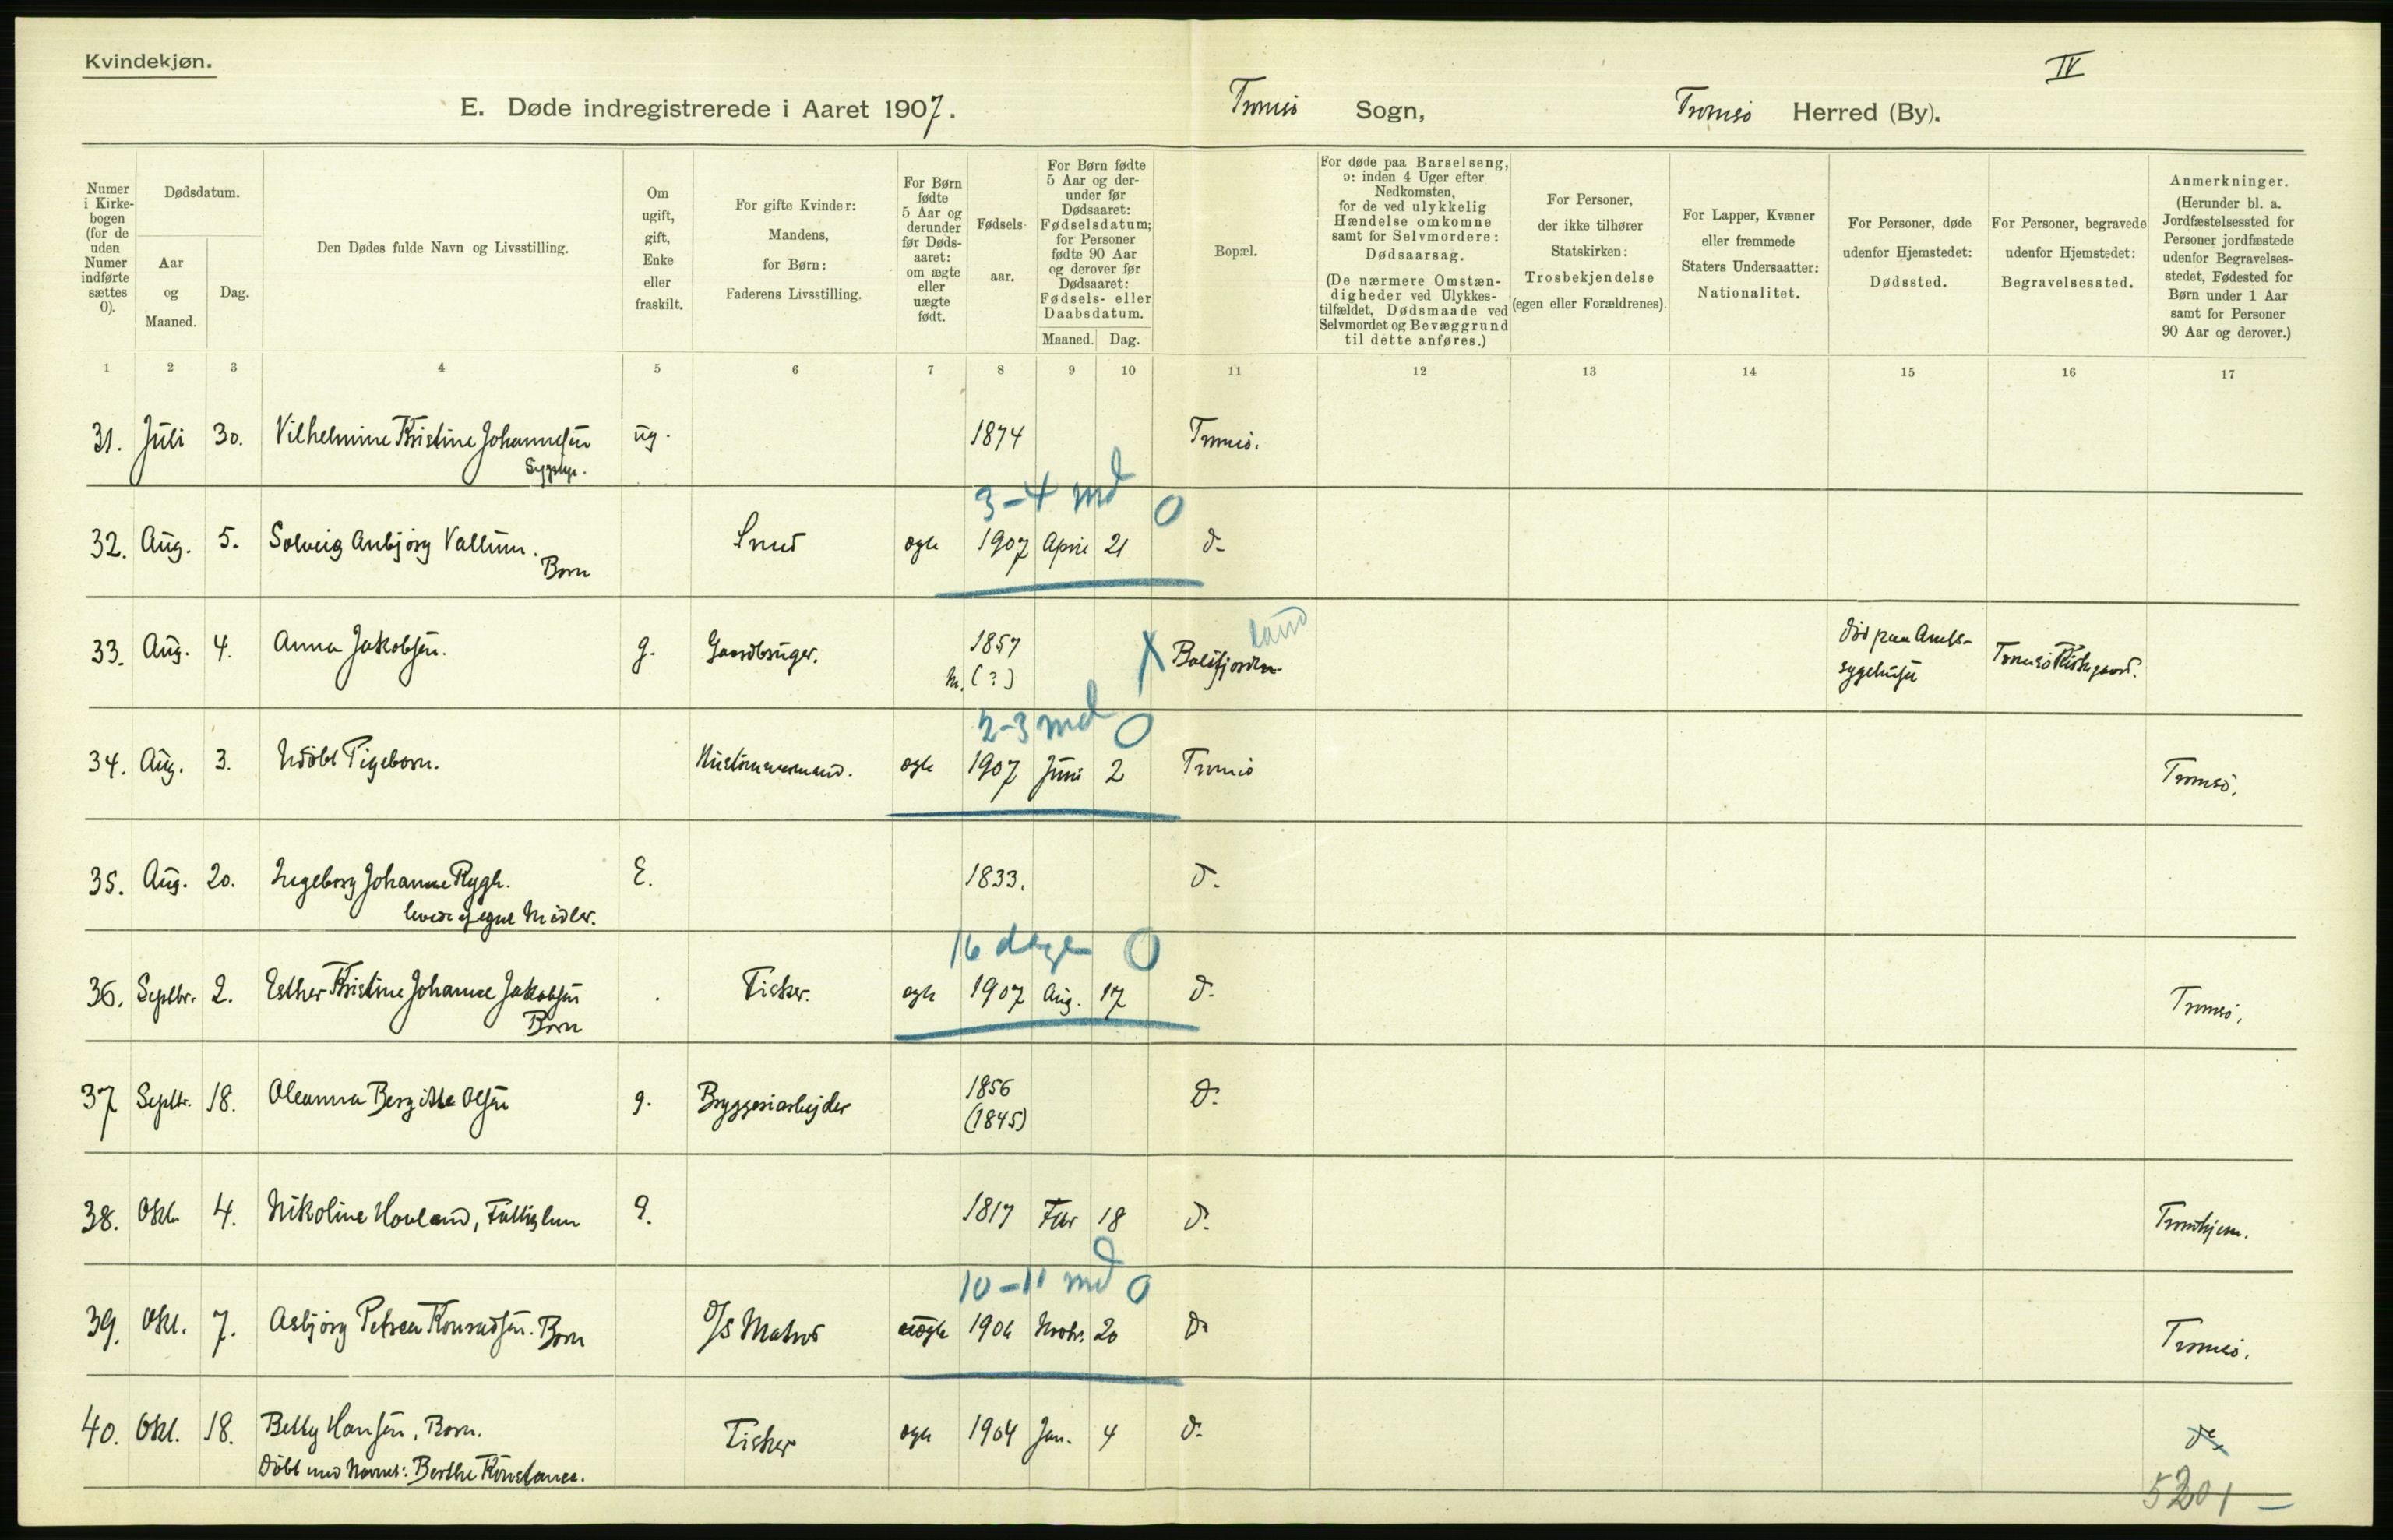 Kvindekjøn.
IV
E. Døde indregistrerede i Aaret 1907. Tromsö Sogn, Tromsö Herred (By).
Numer i Kirke-bogen (for de uden Numer indførte sættes 0).
Dødsdatum.
Aar og Maaned.
Dag.
Den Dødes fulde Navn og Livsstilling.
Om ugift, gift, Enke eller fraskilt.
For gifte Kvinder: Mandens, for Børn: Faderens Livsstilling.
For Børn fødte 5 Aar og derunder før Døds-aaret: om ægte eller uægte født.
Fødsels-aar.
For Børn fødte 5 Aar og der-under før Dødsaaret: Fødselsdatum; for Personer fødte 90 Aar og derover før Dødsaaret: Fødsels- eller Daabsdatum.
Maaned. Dag.
Bopæl.
For døde paa Barselseng, ɔ: inden 4 Uger efter Nedkomsten, for de ved ulykkelig Hændelse omkomne samt for Selvmordere: Dødsaarsag.
(De nærmere Omstæn-digheder ved Ulykkes-tilfældet, Dødsmaade ved Selvmordet og Bevæggrund til dette anføres.)
For Personer, der ikke tilhører Statskirken: Trosbekjendelse (egen eller Forældrenes).
For Lapper, Kvæner eller fremmede Staters Undersaatter: Nationalitet.
For Personer, døde udenfor Hjemstedet: Dødssted.
For Personer, begravede udenfor Hjemstedet: Begravelsessted.
Anmerkninger. (Herunder bl. a. Jordfæstelsessted for Personer jordfæstede udenfor Begravelses-stedet, Fødested for Børn under 1 Aar samt for Personer 90 Aar og derover.)
1 2 3 4 5 6 7 8 9 10 11 12 13 14 15 16 17
31. Juli 30. Vilhelmine Kristine Johannesen ug. 1874 Tromsö.
3-4 md 0
32. Aug. 5. Solveig Anbjørg Vallum. Smed ægte 1907 April 21 do
Barn
land
33. Aug. 4. Anna Jakobsen. g. Gaardbruger. 1857 X Balsfjorden död paa Amts- Tromsö Kirkegaard.
(?) sygehuset
2-3 md 0
34. Aug. 3. Udöbt Pigebarn. ægte 1907 Juni 2 Tromsö Tromsö.
35. Aug. 20. Ingeborg Johanne Rygh. E. 1833. do
levede af egne Midler.
16 dage 0
36. Septbr. 2. Esther Kristine Johanne Jakobsen Fisker. ægte 1907 Aug. 17 do Tromsö.
Barn
37 Septbr. 18. Oleanna Bergitte Olsen g. Bryggeriarbejder 1856 do
(1845)
38. Okt. 4. Nikoline Hovland, Fattiglem g. 1817 Febr 18 do Trondhjem.
10-11 md 0
39. Okt. 7. Asbjørg Petrea Konradsen. Barn Matros uægte 1906 Novbr. 20 do Tromsö.
40. Okt. 18. Betty Hansen, Barn. Fisker ægte 1904 Jan. 4 do do
Döbt med Navnet: Berthe Konstance.
5201 -